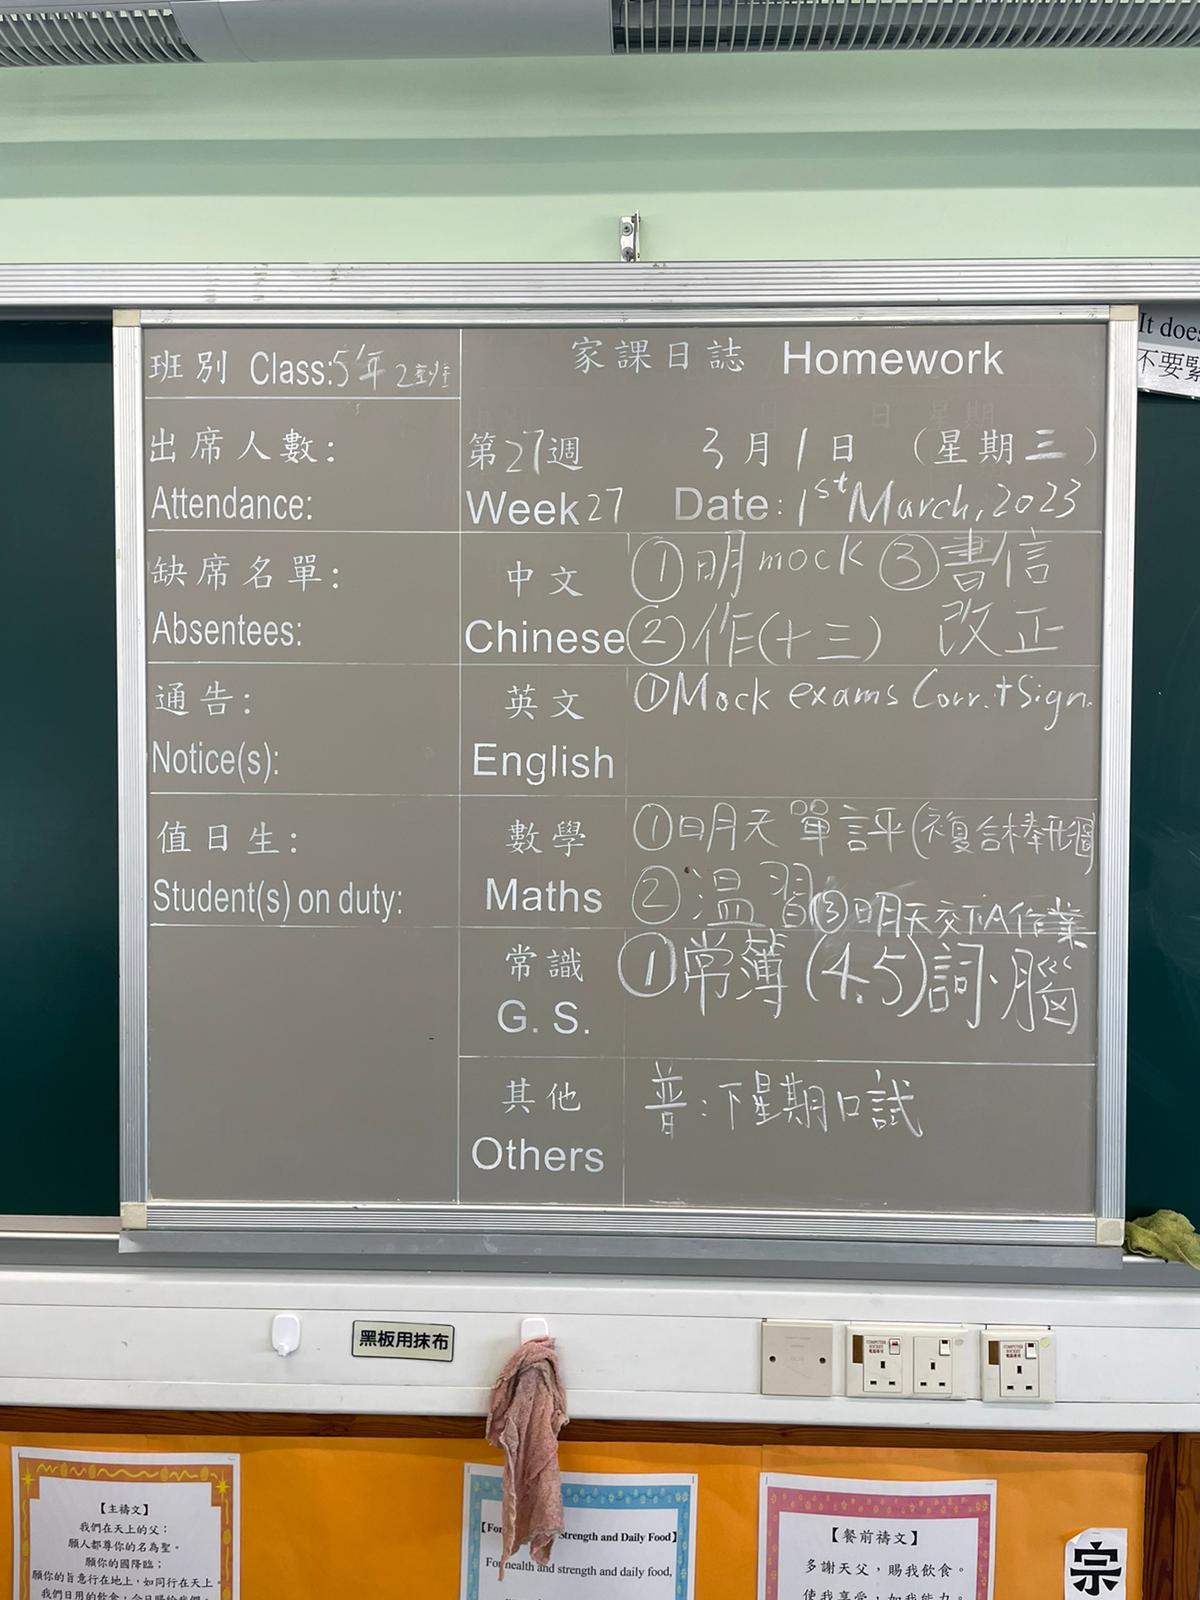 班別 Class:5年2班
家課日誌 Homework
出席人數:
Attendance:
第27週 3月1日 (星期三)
Week 27 Date: 1st March, 2023
缺席名單:
Absentees:
中文
Chinese
①明mock ③書信
②作(十三) 改正
通告:
Notice(s):
英文
English
①Mock exams Corr.+Sign.
值日生:
Student(s) on duty:
數學
Maths
①明天單評(複合棒形圖)
②溫習 ③明天交下A作業
常識
G. S.
①常簿(4.5)詞、腦
其他
Others
普:下星期口試
It does
不要緊
黑板用抹布
COMPUTER SOCKET
COMPUTER SOCKET
【主禱文】
我們在天上的父:
願人都尊你的名為聖。
願你的國降臨;
願你的旨意行在地上,如同行在天上。
我們日用的飲食,今日賜給我們。
【For Strength and Daily Food】
For health and strength and daily food,
【餐前禱文】
多謝天父,賜我飲食。
使我享受,加我能力。
宗